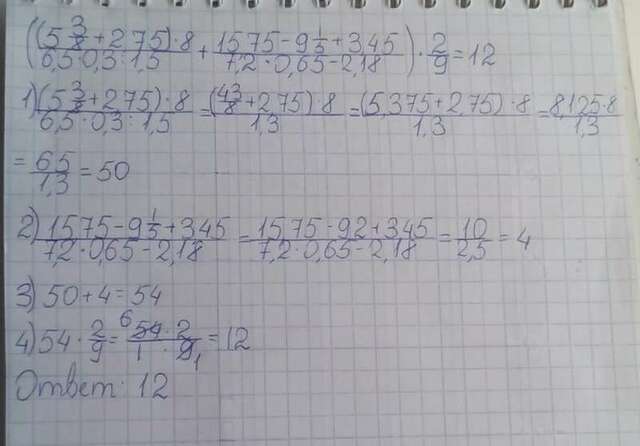 ((5 3/8 + 2,75) · 8 / 6,5 · 0,3 : 1,5 + 15,75 - 9 1/5 + 3,45 / 7,2 · 0,65 - 2,18) · 2/9 = 12
1) (5 3/8 + 2,75) · 8 / 6,5 · 0,3 : 1,5 = (43/8 + 2,75) · 8 / 1,3 = (5,375 + 2,75) · 8 / 1,3 = 8,125 · 8 / 1,3
= 65/1,3 = 50
2) 15,75 - 9 1/5 + 3,45 / 7,2 · 0,65 - 2,18 = 15,75 - 9,2 + 3,45 / 7,2 · 0,65 - 2,18 = 10/2,5 = 4
3) 50 + 4 = 54
4) 54 · 2/9 = 6 54 · 2 / 1 · 9 1 = 12
Ответ: 12